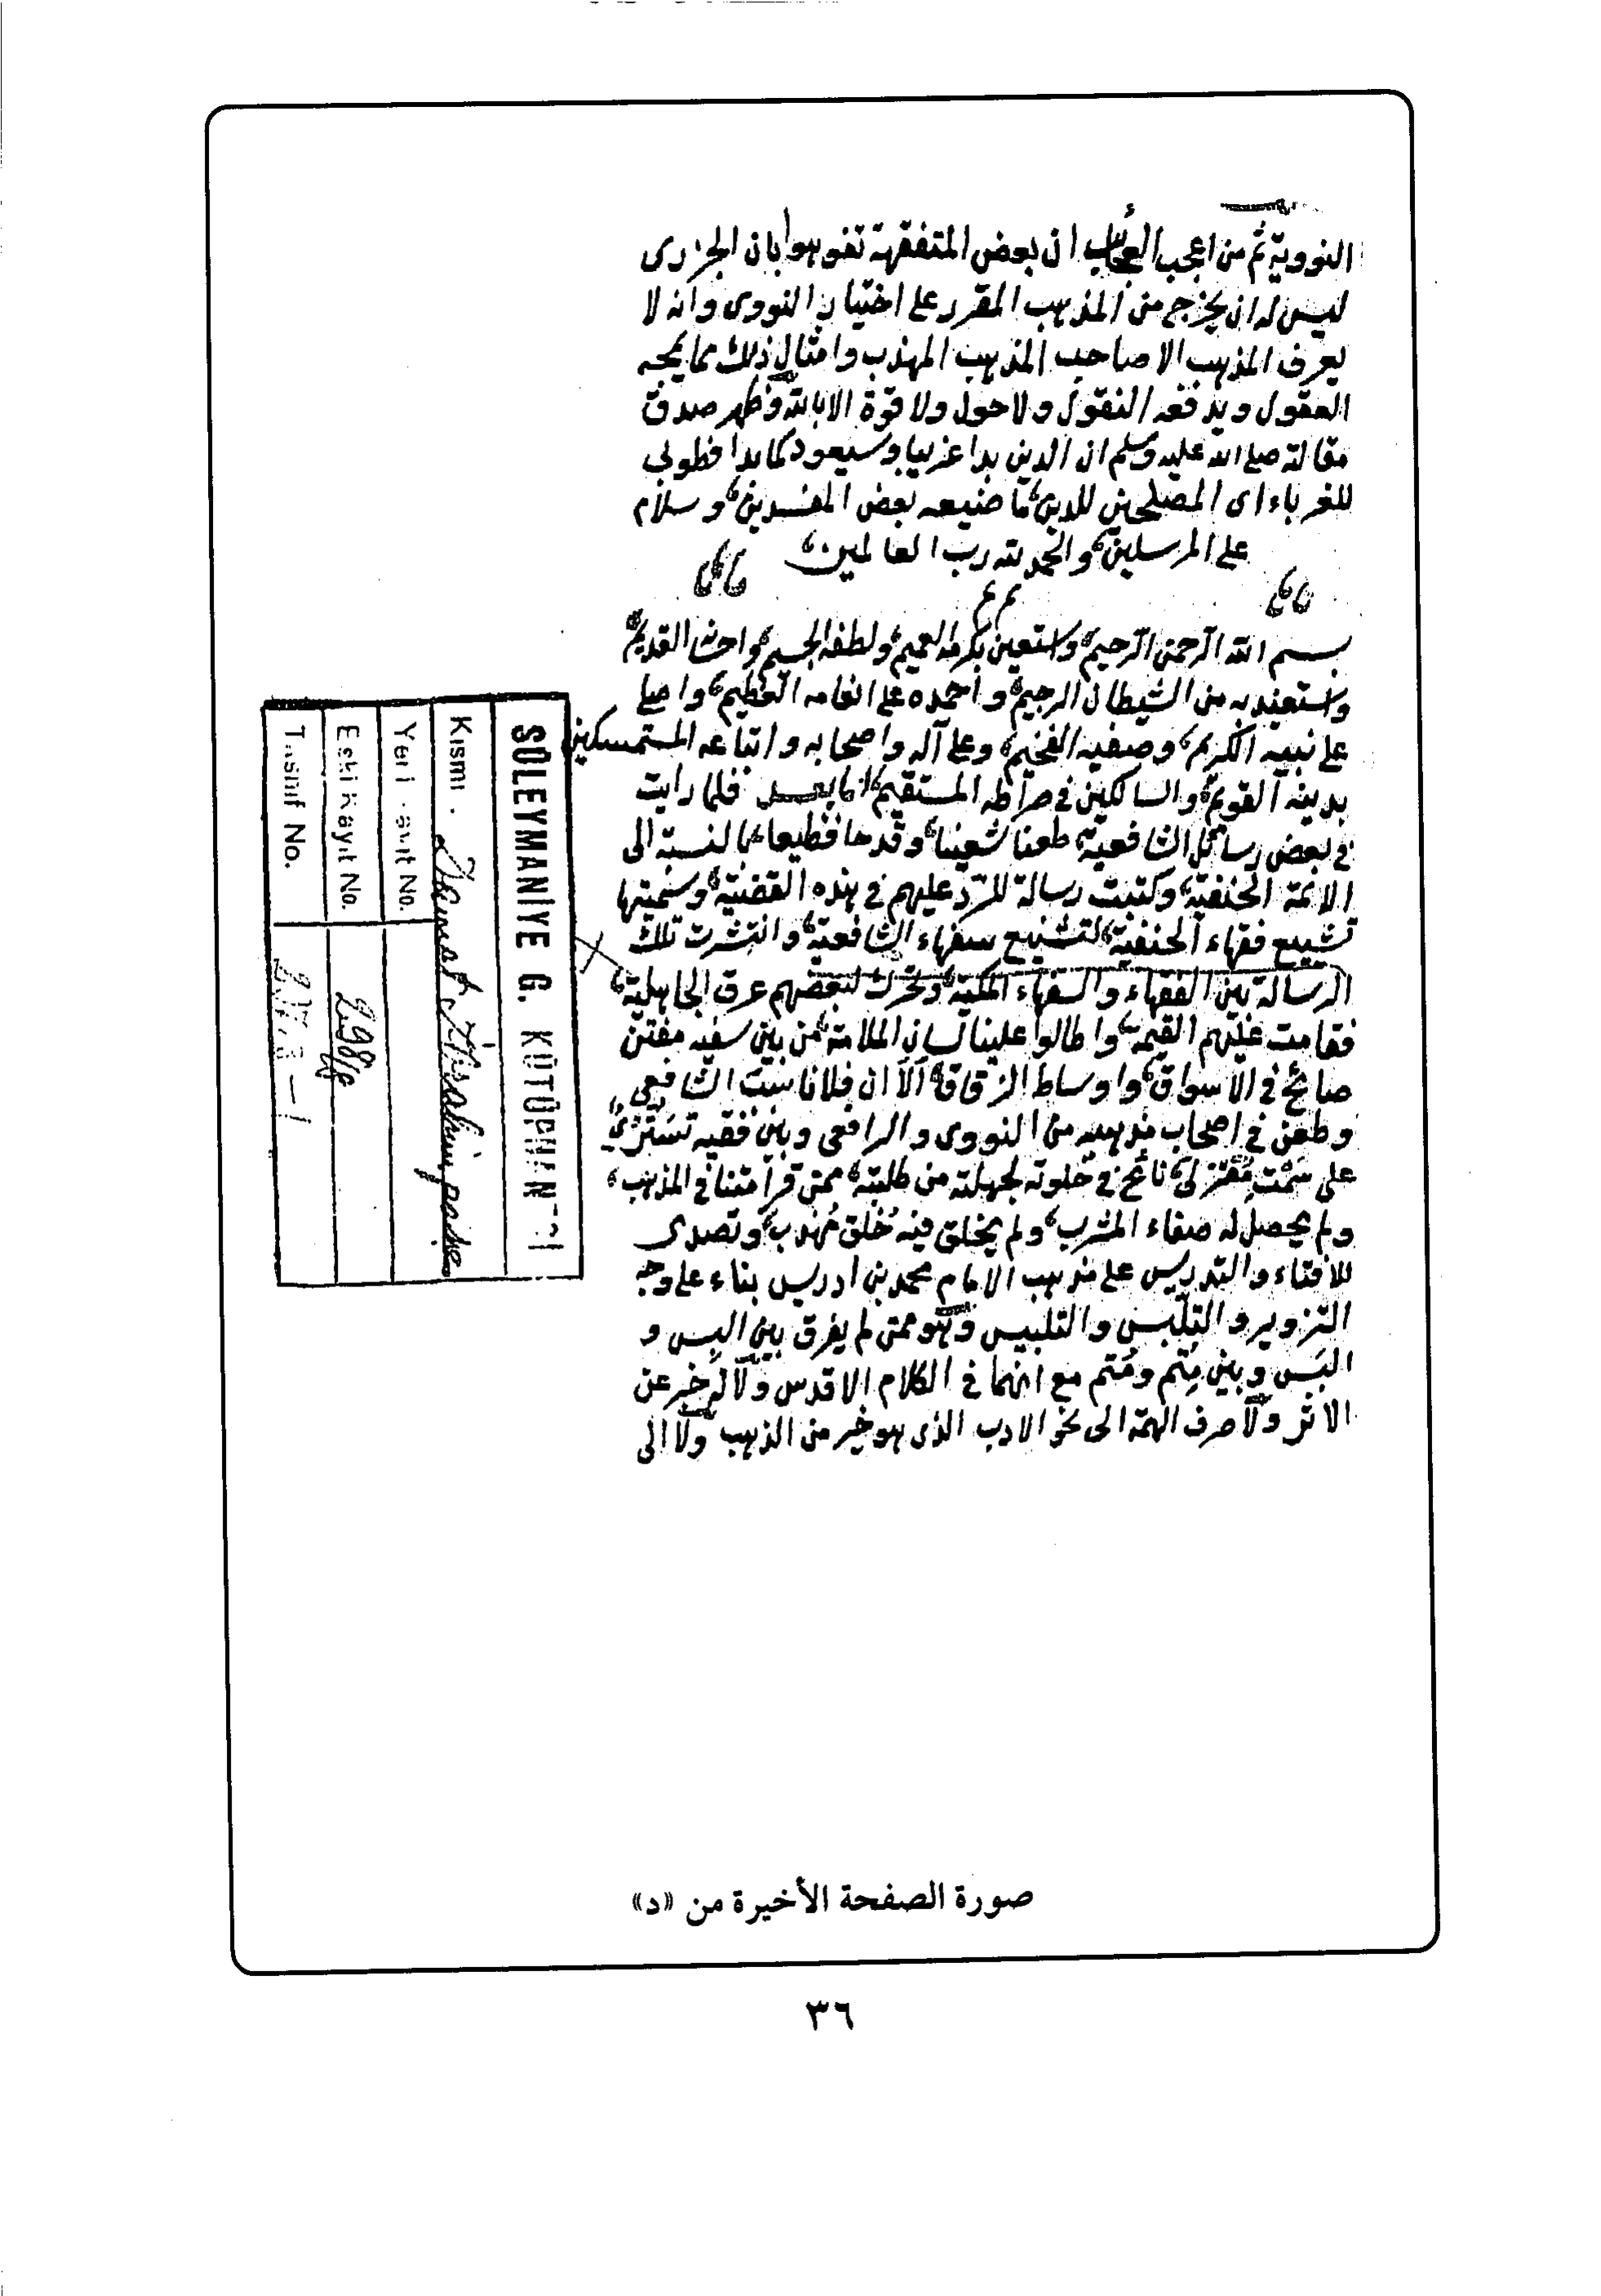 النووية ثم من اعجب العجاب ان بعض المتفقهة تفوهوا بان الجزرى
ليس له ان يخرج من المذهب المقرر على اختيار النووى وانه لا
يعرف المذهب الا صاحب المذهب المهذب وامثال ذلك مما يمجه
العقول ويدفعه النقول ولا حول ولا قوة الا بالله وظهر صدق
مقالته صلى الله عليه وسلم ان الدين بدا غريبا وسيعود كما بدا فطوبى
للغرباء اى المصلحين للدين ما ضيعه بعض المفسدين وسلام
على المرسلين والحمد لله رب العالمين
بسم الله الرحمن الرحيم واستعين بكرمه العميم ولطفه الجسيم واحسانه القديم
واستعيذ به من الشيطان الرجيم واحمده على انعامه العظيم واصلى
على نبيه الكريم وصفيه الفخيم وعلى آله واصحابه واتباعه المستمسكين
بدينه القويم والسالكين فى صراطه المستقيم اما بعد فلما رايت
فى بعض رسائل الشافعية طعنا شنيعا وقدحا فظيعا بالنسبة الى
الائمة الحنفية وكتبت رسالة للرد عليهم فى هذه القضية وسميتها
تشييع فقهاء الحنفية لتشنيع سفهاء الشافعية وانتشرت تلك
الرسالة بين الفقهاء والسفهاء المكية وتحرك لبعضهم عرق الجاهلية
فقامت عليهم القيمة واطالوا علينا لسان الملامة من بين سفيه مفتن
صائح فى الاسواق واوساط الزقاق الا ان فلانا سب الشافعى
وطعن فى اصحاب مذهبه من النووى والرافعى وبين فقيه
على سمت معتزلى نائح فى خلوته لجهلته من طلبته ممن قرا متنا فى المذهب
ولم يحصل له صفاء المشرب ولم يخلق فيه خلق مهذب وتصدى
للافتاء والتدريس على مذهب الامام محمد بن ادريس بناء على وجه
التزوير والتلبس والتلبيس وهو ممن لم يفرق بين البس و
البس وبين متم ومتم مع انهما فى الكلام الاقدس ولا له خبر عن
الاثر ولا صرف الهمة الى نحو الادب الذى هو خير من الذهب ولا الى
SÜLEYMANİYE G. KÜTÜPHANESİ
Kısmı
Yeni Kayıt No.
Eski Kayıt No. 298
Tasnif No.
صورة الصفحة الأخيرة من «د»
٣٦